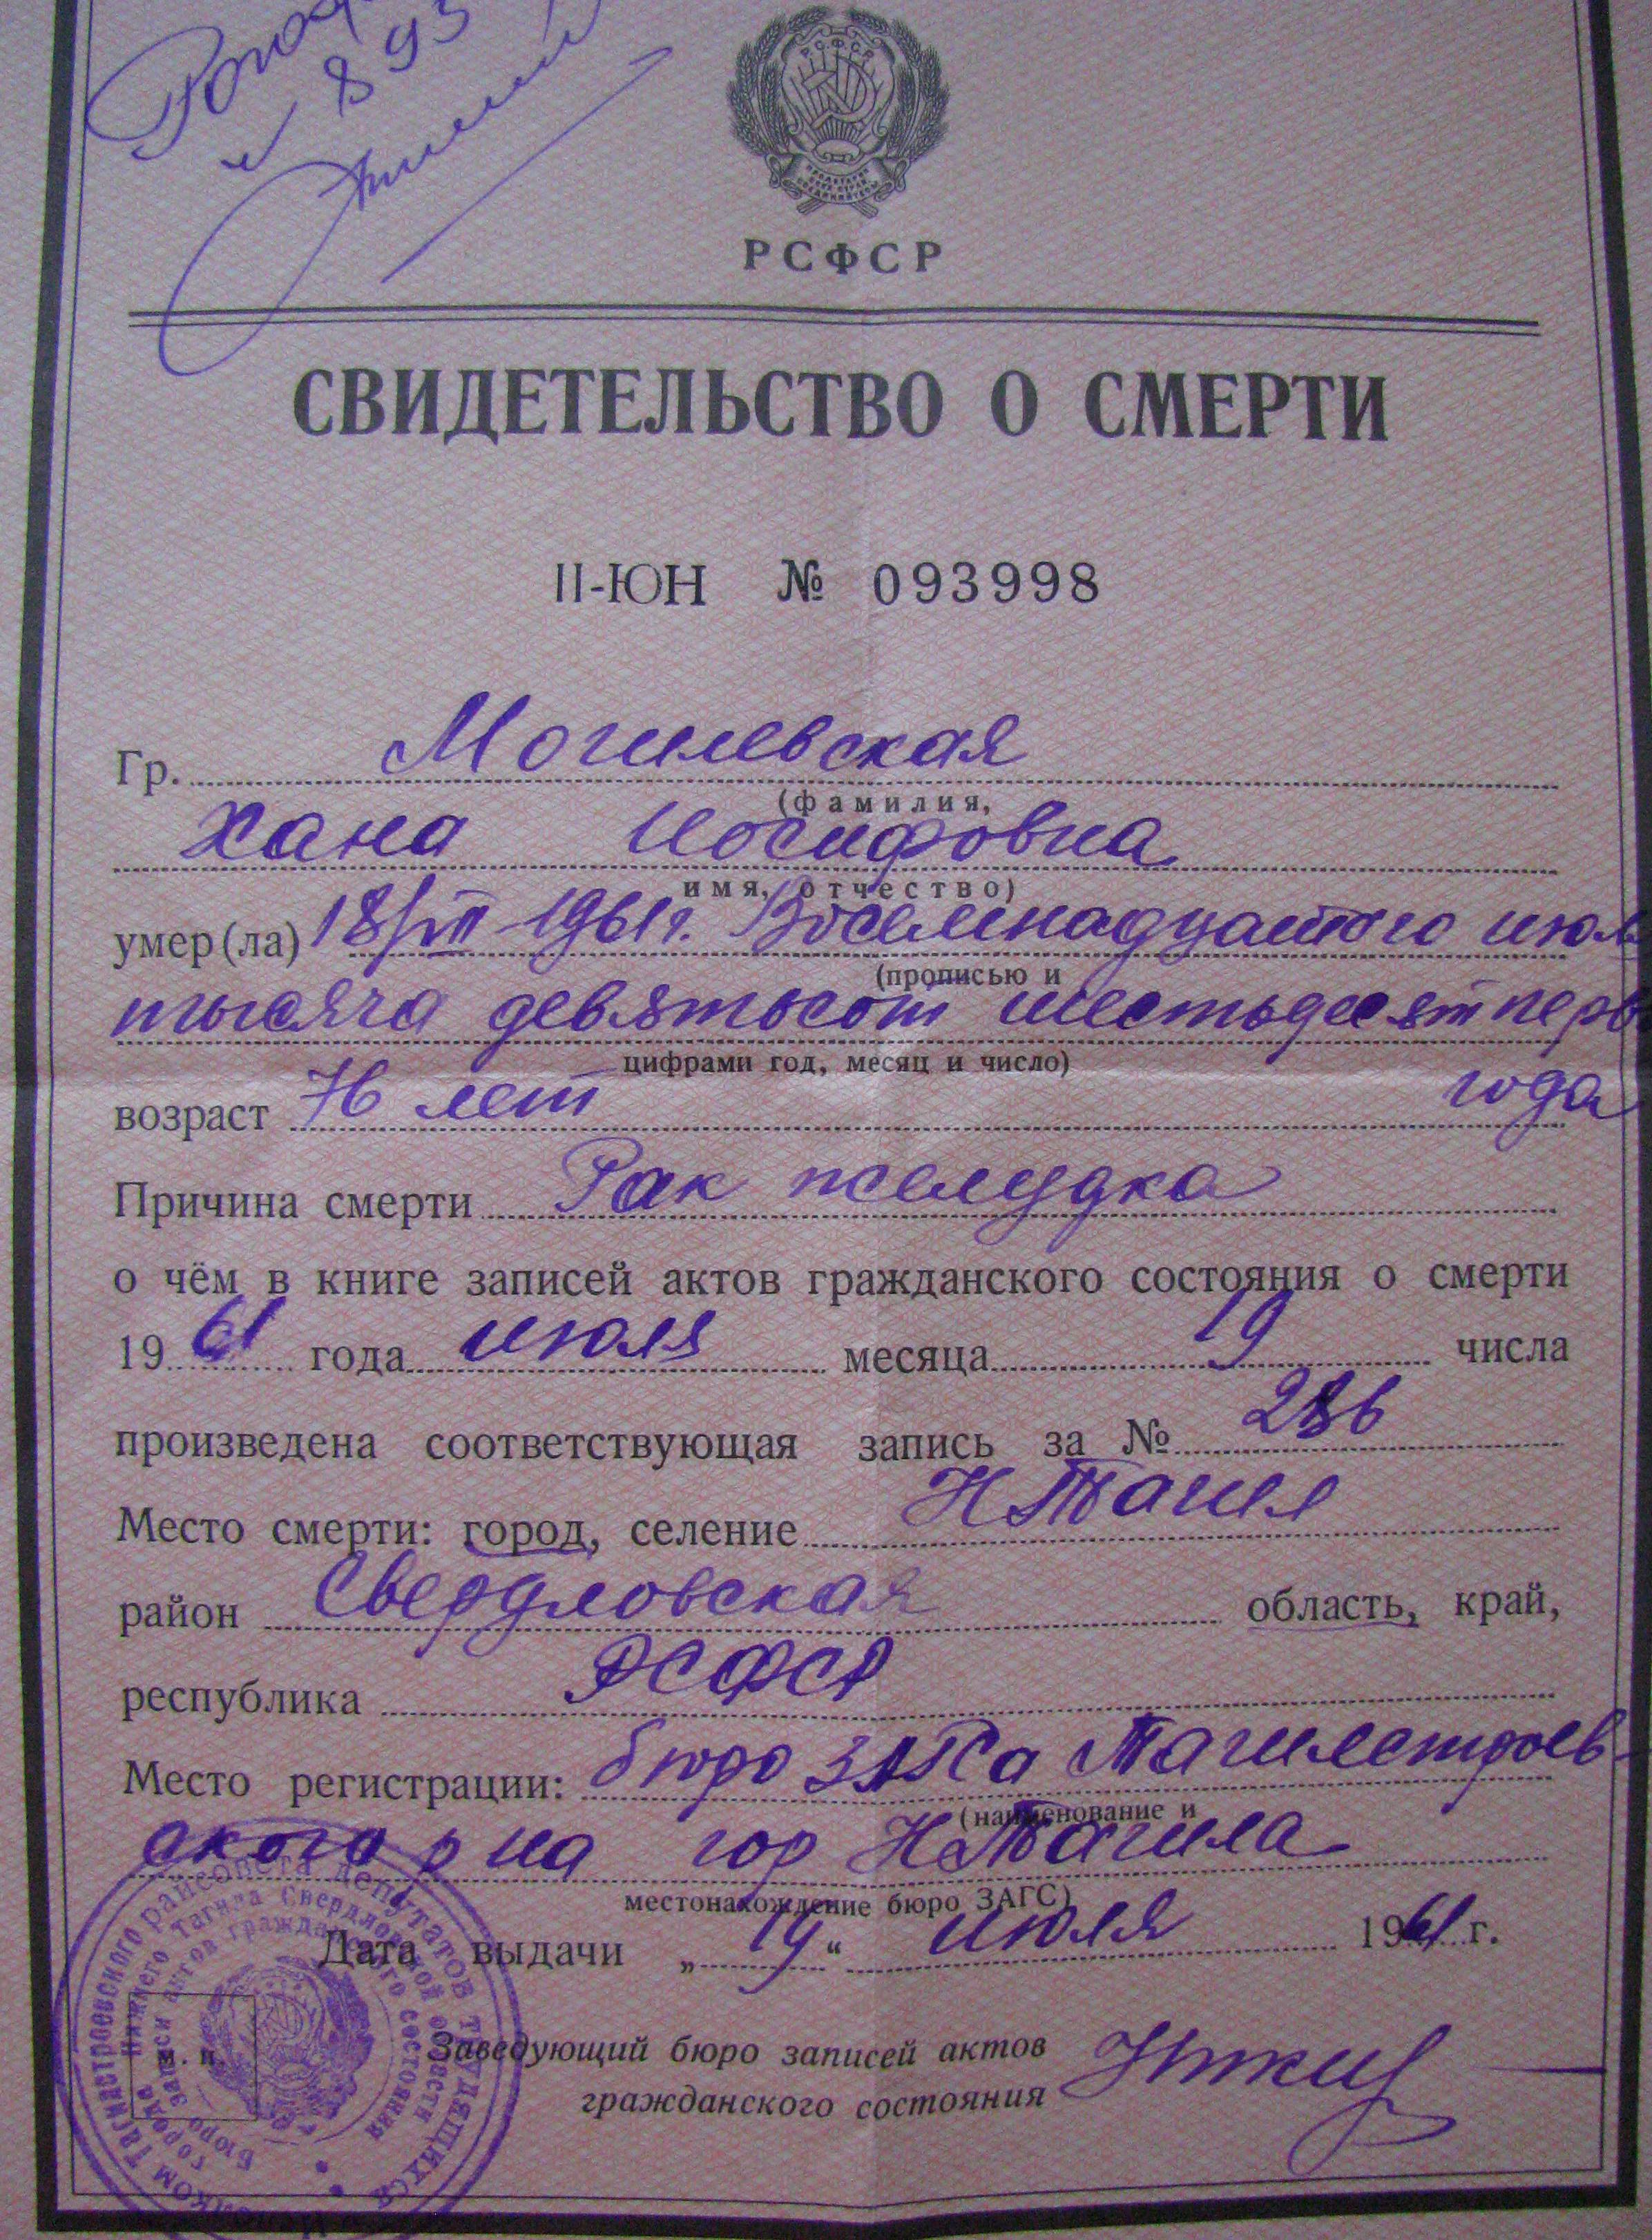 893
Р.С.Ф.С.Р.
РСФСР
СВИДЕТЕЛЬСТВО О СМЕРТИ
II-ЮН № 093998
Гр. Могилевская
(фамилия,
Хана Иосифовна
имя, отчество)
умер(ла) 18/VII 1961г. Восемнадцатого июля
(прописью и
тысяча девятьсот шестьдесят перв
цифрами год, месяц и число)
года
возраст 76 лет
Причина смерти Рак желудка
о чём в книге записей актов гражданского состояния о смерти
1961 года июля месяца 19 числа
произведена соответствующая запись за №
Место смерти: город, селение Н Тагил
район Свердловская область, край,
республика РСФСР
Место регистрации: бюро ЗАГСа Тагилстроев-
(наименование и
ского р на гор Н Тагила
местонахождение бюро ЗАГС)
Дата выдачи „19“ июля 1961 г.
м. п.
Заведующий бюро записей актов
гражданского состояния
Тагилстроевского райсовета депутатов трудящихся
города Нижнего Тагила Свердловской области
Бюро записи актов гражданского состояния